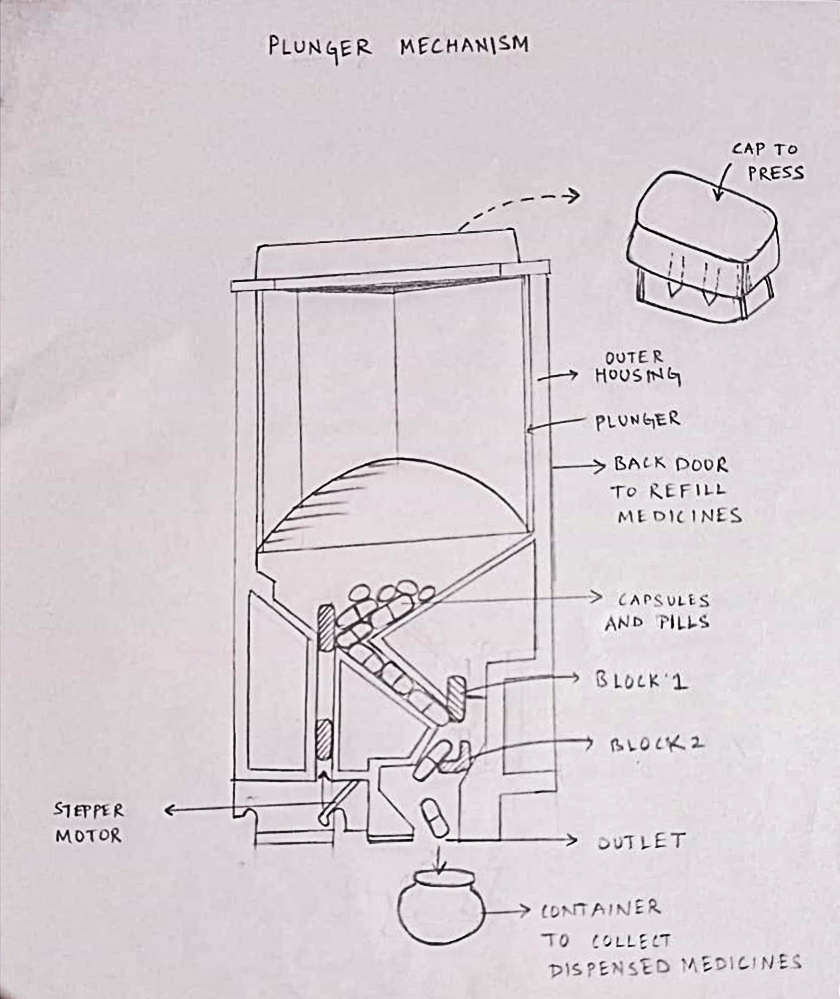 PLUNGER MECHANISM
CAP TO
PRESS
OUTER
HOUSING
PLUNGER
BACK DOOR
TO REFILL
MEDICINES
CAPSULES
AND PILLS
BLOCK 1
BLOCK 2
STEPPER
MOTOR
OUTLET
CONTAINER
TO COLLECT
DISPENSED MEDICINES